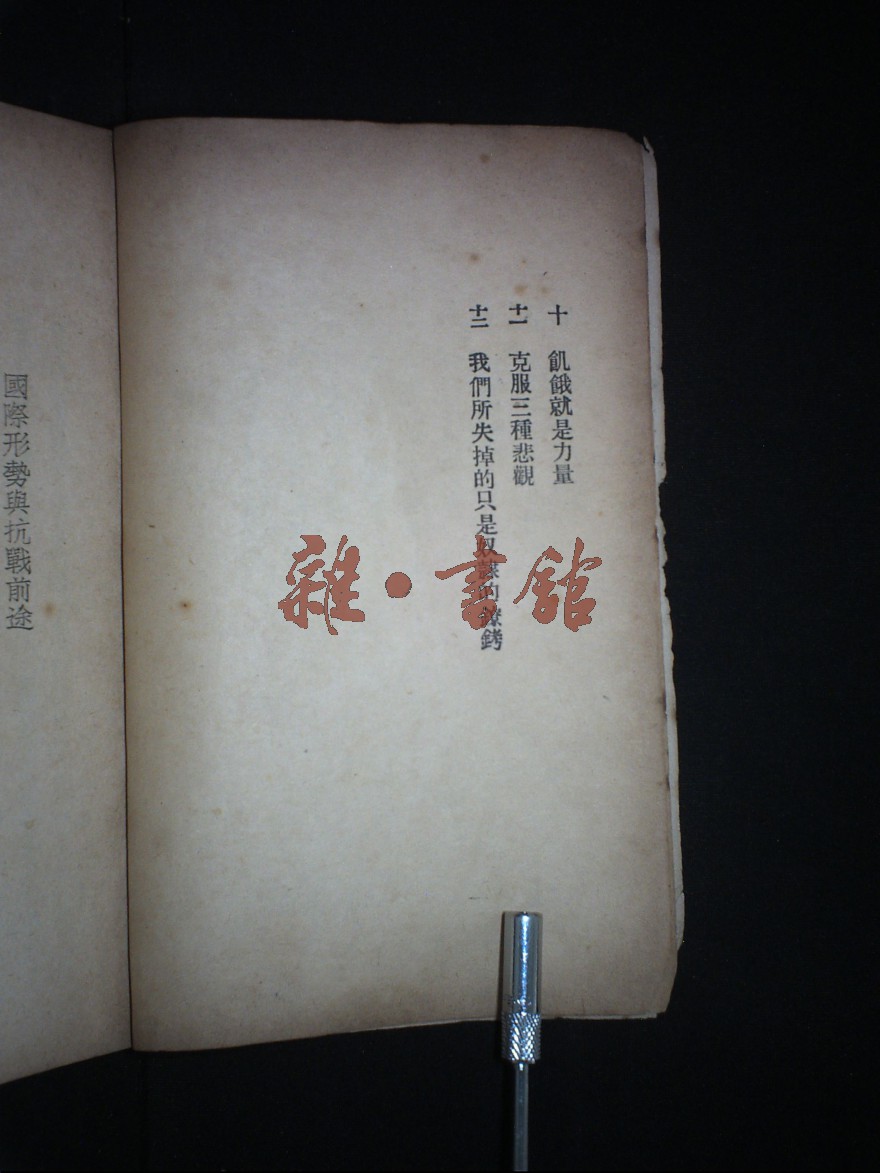 十 飢餓就是力量
十一 克服三種悲觀
十二 我們所失掉的只是奴隸的鐐銬
國際形勢與抗戰前途
雜·書館